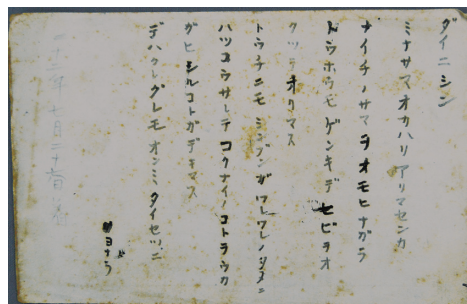 ダイニシン
ミナサマオカハリアリマセンカ
ナイチノサマヲオモヒナガラ
ドウホウモゲンキデセビヲオ
クツテオリマス
トウチニモシンブンガワレワレノタメニ
ハツコウサレテコクナイノコトヲウカ
ガヒシルコトガデキマス
デハクレグレモオンミタイセツニ
サヨナラ
二十二年七月二十 日 着